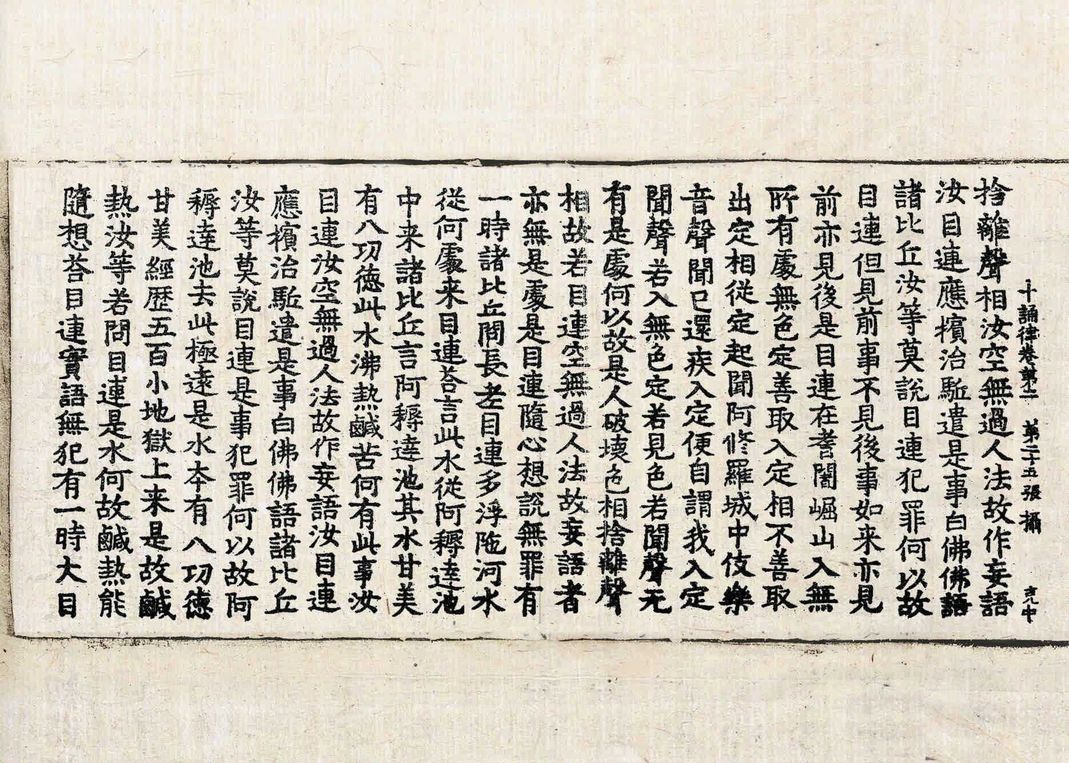 十誦律卷第二 第二十五張 攝
捨離聲相汝空無過人法故作妄語
汝目連應擯治駈遣是事白佛佛語
諸比丘汝等莫說目連犯罪何以故
目連但見前事不見後事如来亦見
前亦見後是目連在耆闍崛山入無
所有處無色定善取入定相不善取
出定相從定起聞阿修羅城中伎樂
音聲聞已還疾入定便自謂我入定
聞聲若入無色定若見色若聞聲无
有是處何以故是人破壞色相捨離聲
相故若目連空無過人法故妄語者
亦無是處是目連隨心想說無罪有
一時諸比丘問長老目連多浮陁河水
從何處来目連荅言此水從阿耨達池
中来諸比丘言阿耨達池其水甘美
有八功德此水沸熱鹹苦何有此事汝
目連汝空無過人法故作妄語汝目連
應擯治駈遣是事白佛佛語諸比丘
汝等莫說目連是事犯罪何以故阿
耨達池去此極遠是水夲有八功德
甘美經歷五百小地獄上来是故鹹
熱汝等若問目連是水何故鹹熱能
隨想荅目連實語無犯有一時大目